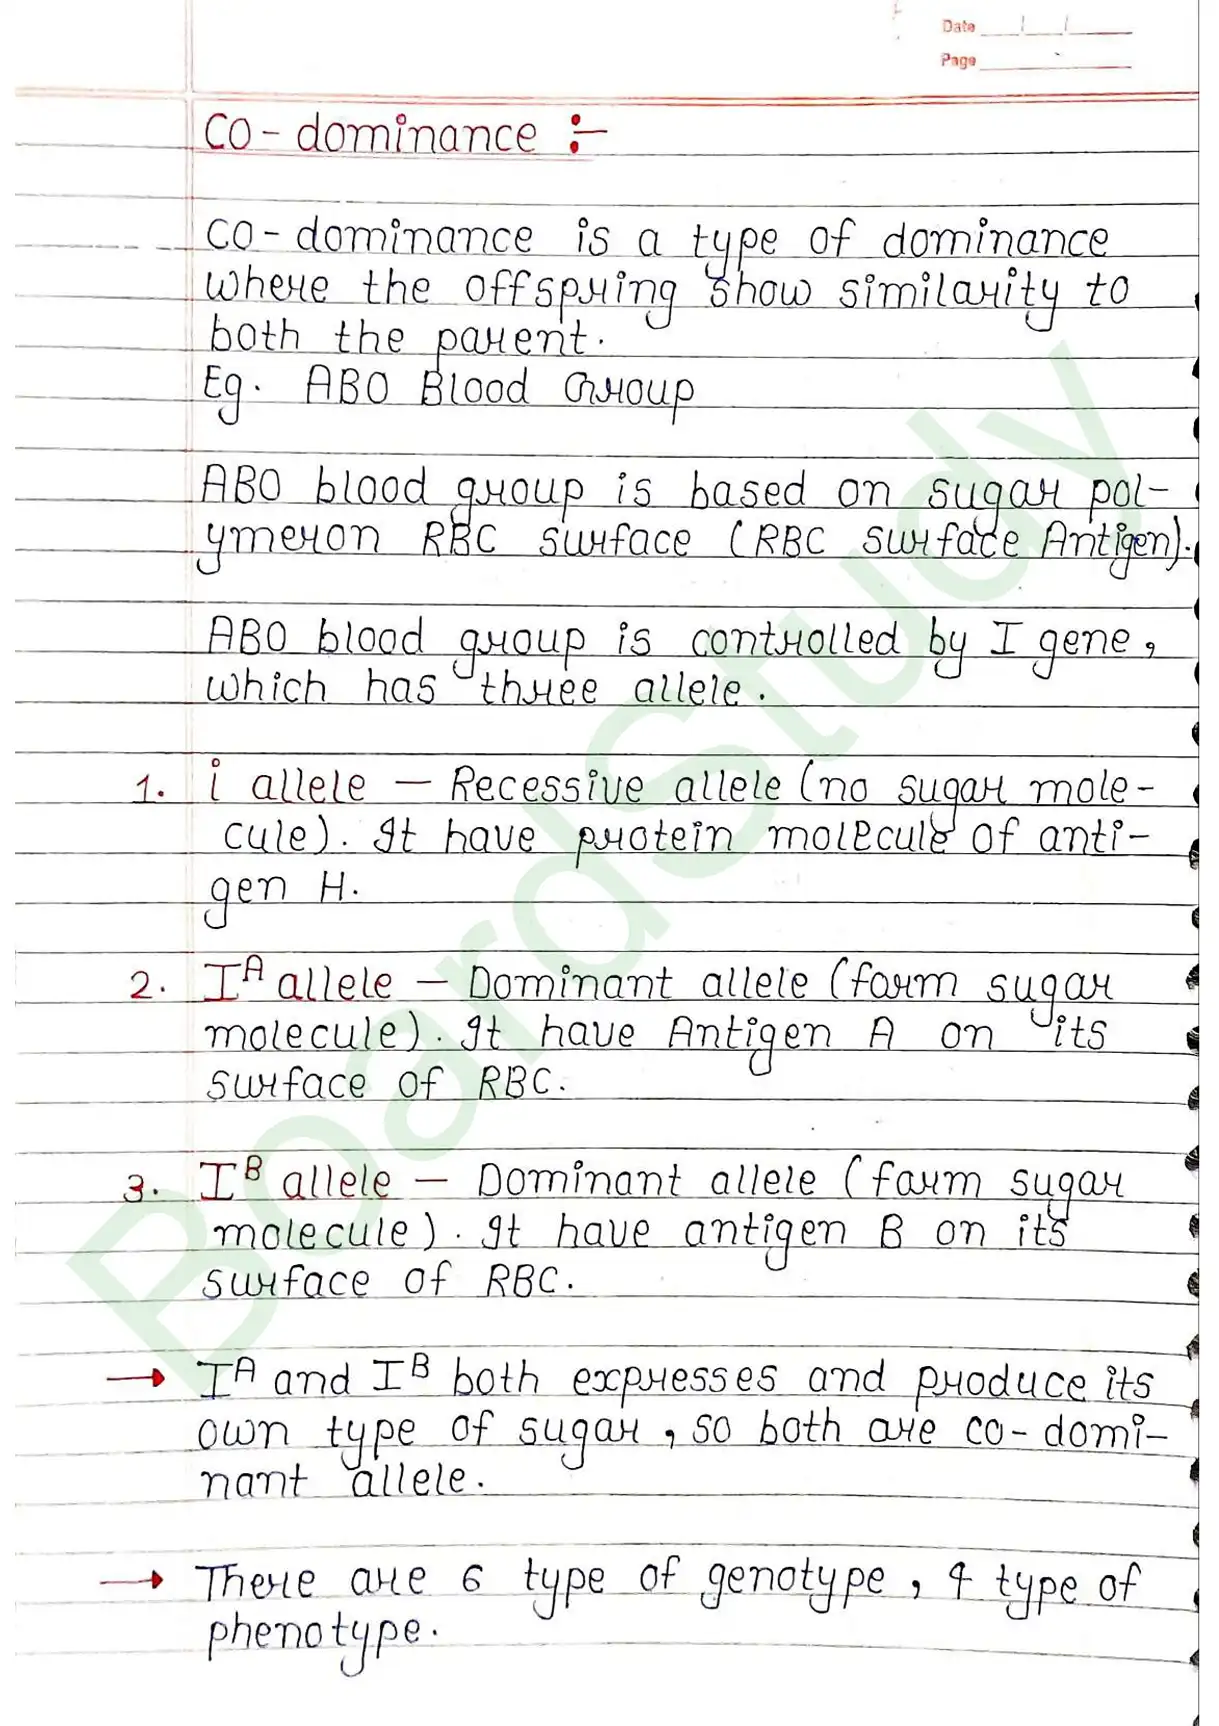 Date
Page
CO - dominance :-
CO - dominance is a type of dominance
where the offspring show similarity to
both the parent.
Eg. ABO Blood Group
ABO blood group is based on sugar pol-
ymeron RBC surface (RBC surface Antigen).
ABO blood group is controlled by I gene,
which has three allele.
1. i allele — Recessive allele (no sugar mole-
cule). It have protein molecule of anti-
gen H.
2. Iᴬ allele — Dominant allele (form sugar
molecule). It have Antigen A on its
surface of RBC.
3. Iᴮ allele — Dominant allele (form sugar
molecule). It have antigen B on its
surface of RBC.
→ Iᴬ and Iᴮ both expresses and produce its
own type of sugar, so both are co-domi-
nant allele.
→ There are 6 type of genotype, 4 type of
phenotype.
BoardStudy